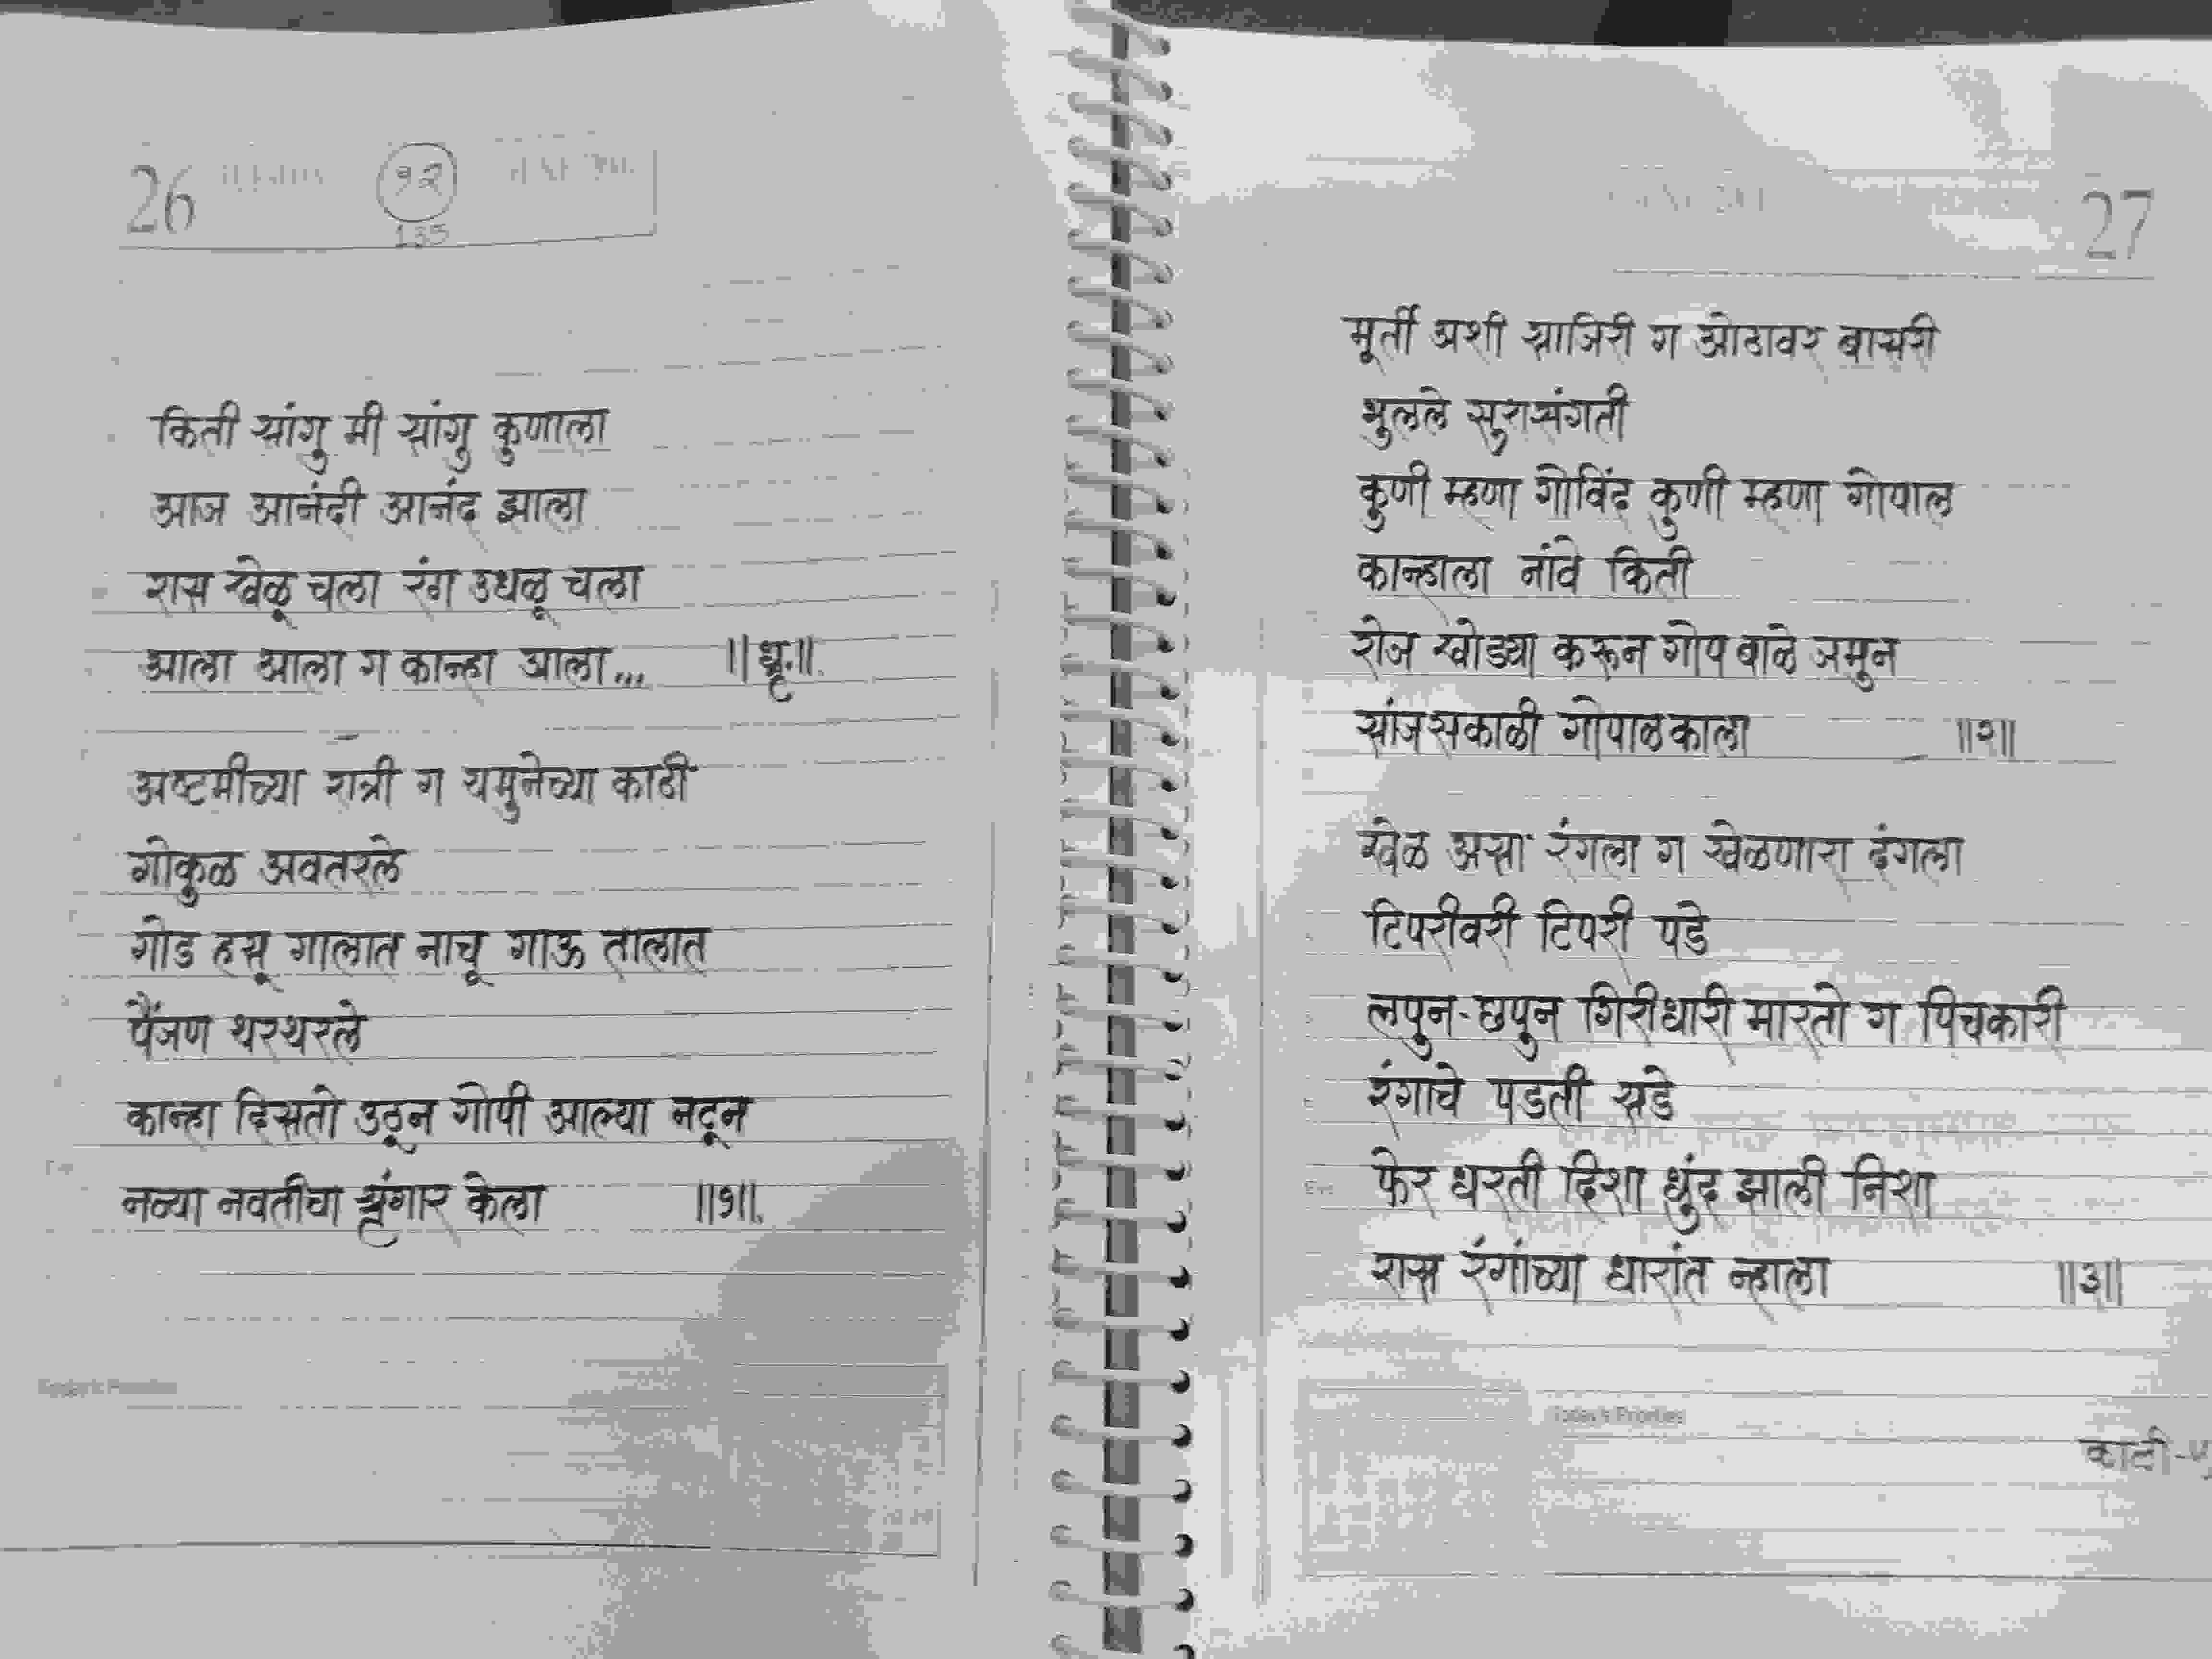 26
१२
135
किती सांगु मी सांगु कुणाला
आज आनंदी आनंद झाला
रास खेळू चला रंग उधळू चला
आला आला ग कान्हा आला... ||धृ.||
अष्टमीच्या रात्री ग यमुनेच्या काठी
गोकुळ अवतरले
गोड हसू गालात नाचू गाऊ तालात
पैंजण थरथरले
कान्हा दिसतो उठून गोपी आल्या नटून
नव्या नवतीचा शृंगार केला ||१||
Today's Priorities
27
मूर्ती अशी साजिरी ग ओठावर बासरी
भुलले सुरासंगती
कुणी म्हणा गोविंद कुणी म्हणा गोपाल
कान्हाला नांवे किती
रोज खोड्या करून गोप बाळे जमुन
सांजसकाळी गोपाळकाला ||२||
खेळ असा रंगला ग खेळणारा दंगला
टिपरीवरी टिपरी पडे
लपुन-छपुन गिरीधारी मारतो ग पिचकारी
रंगाचे पडती सडे
फेर धरती दिशा धुंद झाली निशा
रास रंगांच्या धारांत न्हाला ||३||
Today's Priorities